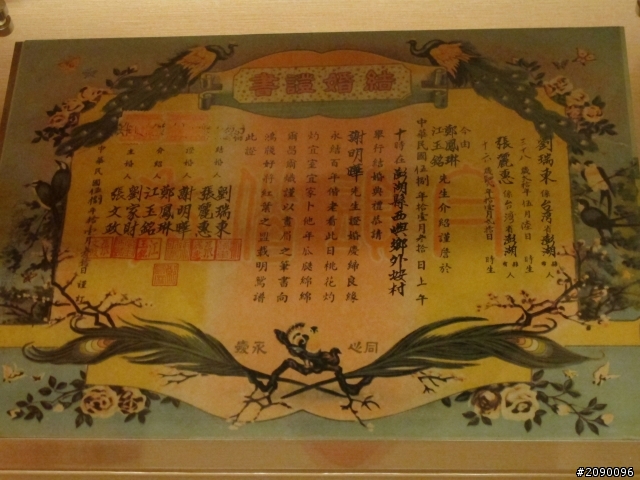 結婚證書
劉瑞東係台灣省澎湖縣人
三八歲拾年伍月 日 時生
張麗惠係台灣省澎湖縣人
十六 時生
今由
鄭鳳琳
江玉銘先生介紹謹詹於
中華民國伍捌年拾壹月 拾日上午
十時在澎湖縣西嶼鄉外垵村
舉行結婚典禮恭請
謝明曄先生證婚慶綿良緣
永結百年偕老看此日桃花灼
灼宜室宜家卜他年瓜瓞綿綿
爾昌爾熾謹以書眉之筆書向
鴻箋好行紅葉之盟載明鴛譜
此證
結婚人
劉瑞東
張麗惠
證婚人
謝明曄
介紹人
鄭鳳琳
江玉銘
主婚人
劉家財
張文政
中華民國伍捌年
同心永愛
#2090096